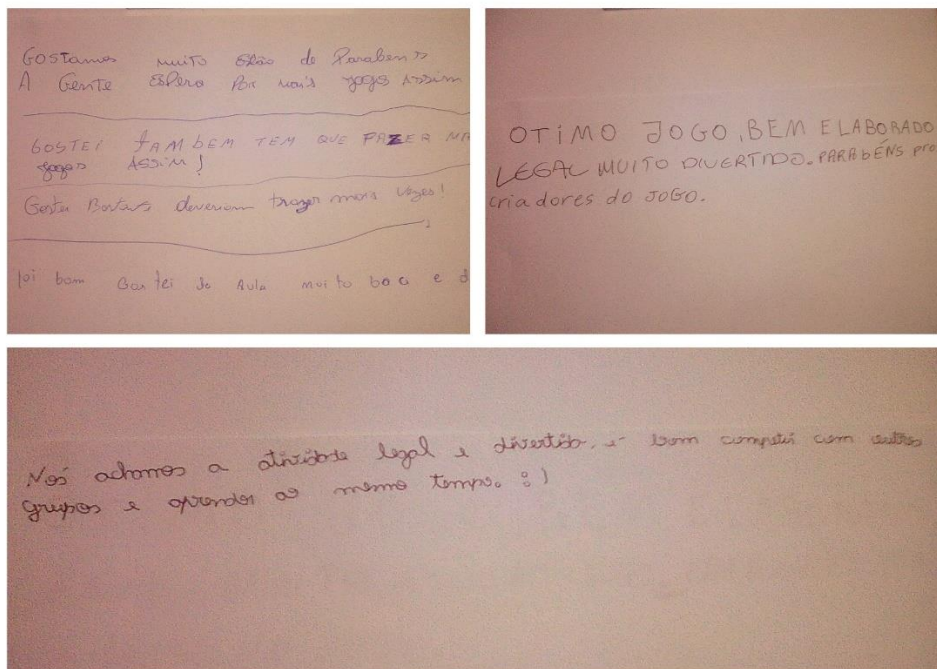 GOSTAMOS muito Estão de Parabens
A Gente Espera Por mais jogos Assim
GOSTEI TAMBEM TEM QUE FAZER MA
jogos ASSIM!
deveriam trazer mais vezes!
foi bom Gostei da Aula muito boa e d
OTIMO JOGO, BEM ELABORADO
LEGAL MUITO DIVERTIDO. PARABÉNS pro
criadores do JOGO.
Nós achamos a atividade legal e divertida, é bom competir com outros
grupos e aprender ao mesmo tempo. :)